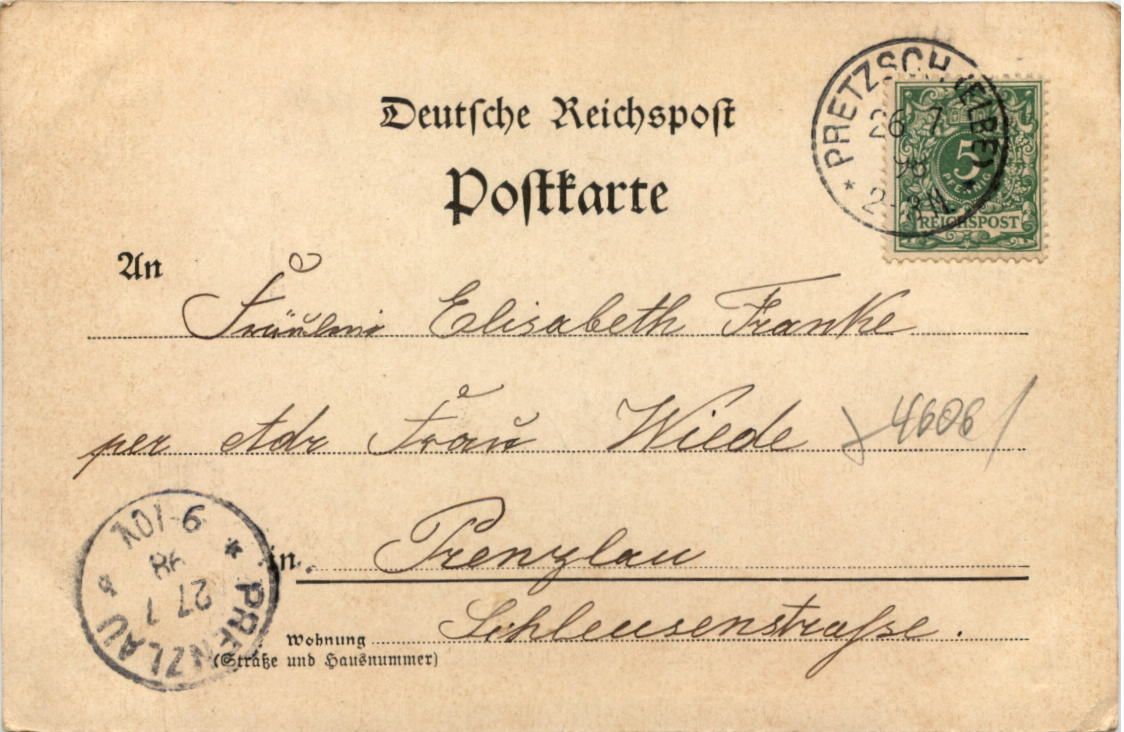 Deutsche Reichspost
Postkarte
PRETZSCH (ELBE)
26 7
98
2-3N.
5
PFENNIG
REICHSPOST
An
Fräulein Elisabeth Franke
per Adr Frau Wiede
4606
in Prenzlau
Schleusenstraße.
Wohnung
(Straße und Hausnummer)
PRENZLAU
27 7
98
9-10V.